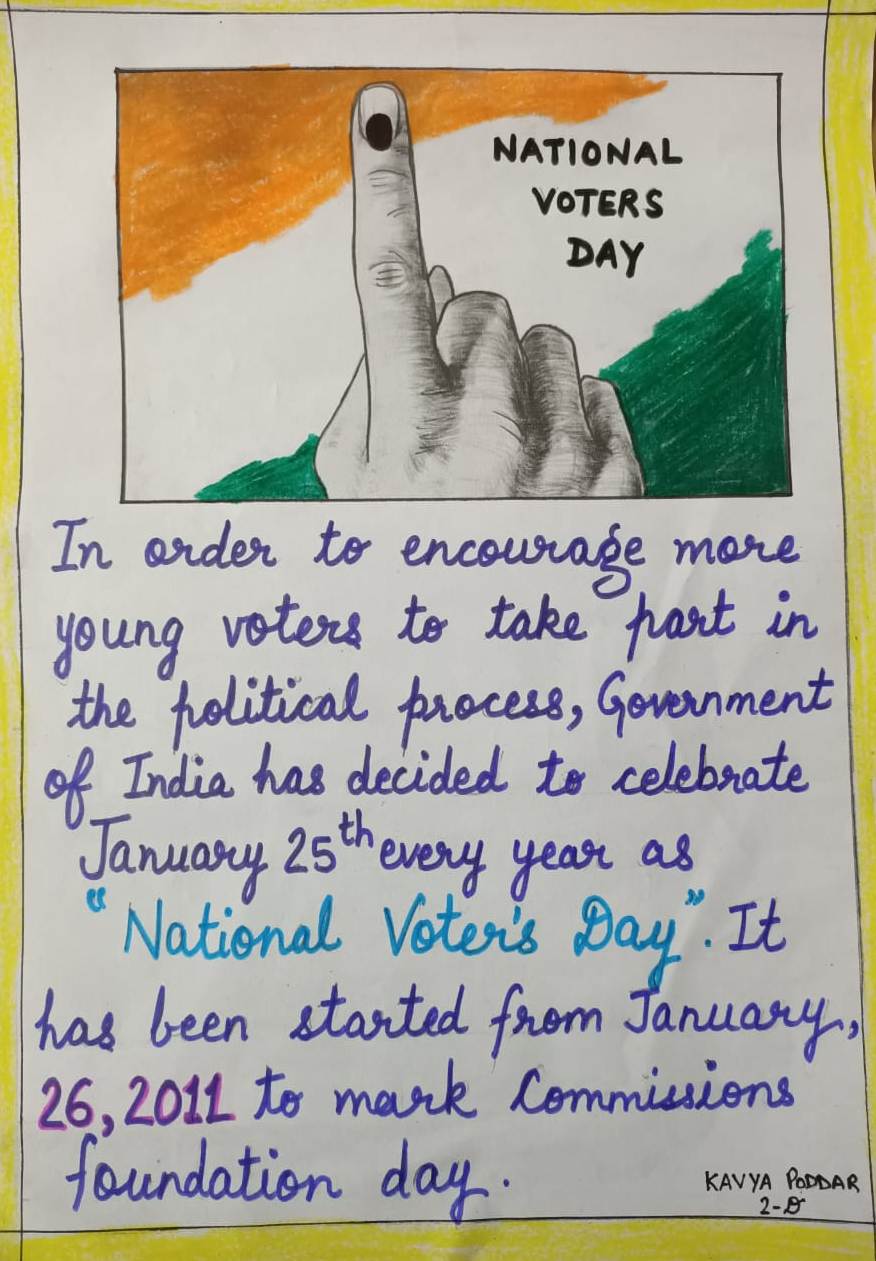 NATIONAL
VOTERS
DAY
In order to encourage more
young voters to take part in
the political process, Government
of India has decided to celebrate
January 25th every year as
"National Voter's Day". It
has been started from January,
26, 2011 to mark Commissions
foundation day.
KAVYA PODDAR
2-D